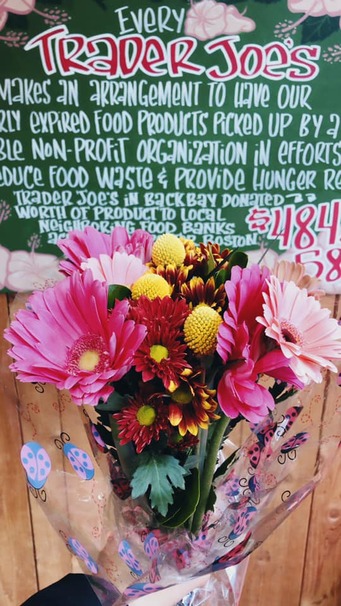 EVERY
TRADER JOE'S
MAKES AN ARRANGEMENT TO HAVE OUR
RLY EXPIRED FOOD PRODUCTS PICKED UP BY A
BLE NON-PROFIT ORGANIZATION IN EFFORTS
DUCE FOOD WASTE & PROVIDE HUNGER RE
TRADER JOE'S IN BACK BAY DONATED
WORTH OF PRODUCT TO LOCAL $484
NEIGHBORING FOOD BANKS 58
BOSTON